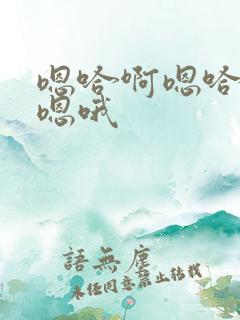 嗯哈啊嗯哈
嗯哦
語無塵
未经同意禁止转载